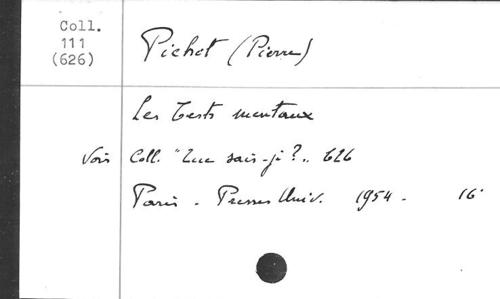 Coll.
111
(626)
Pichot (Pierre)
Les Tests mentaux
Voir Coll. "Que sais-je?" 626
Paris - Presses Univ. 1954 - 16°